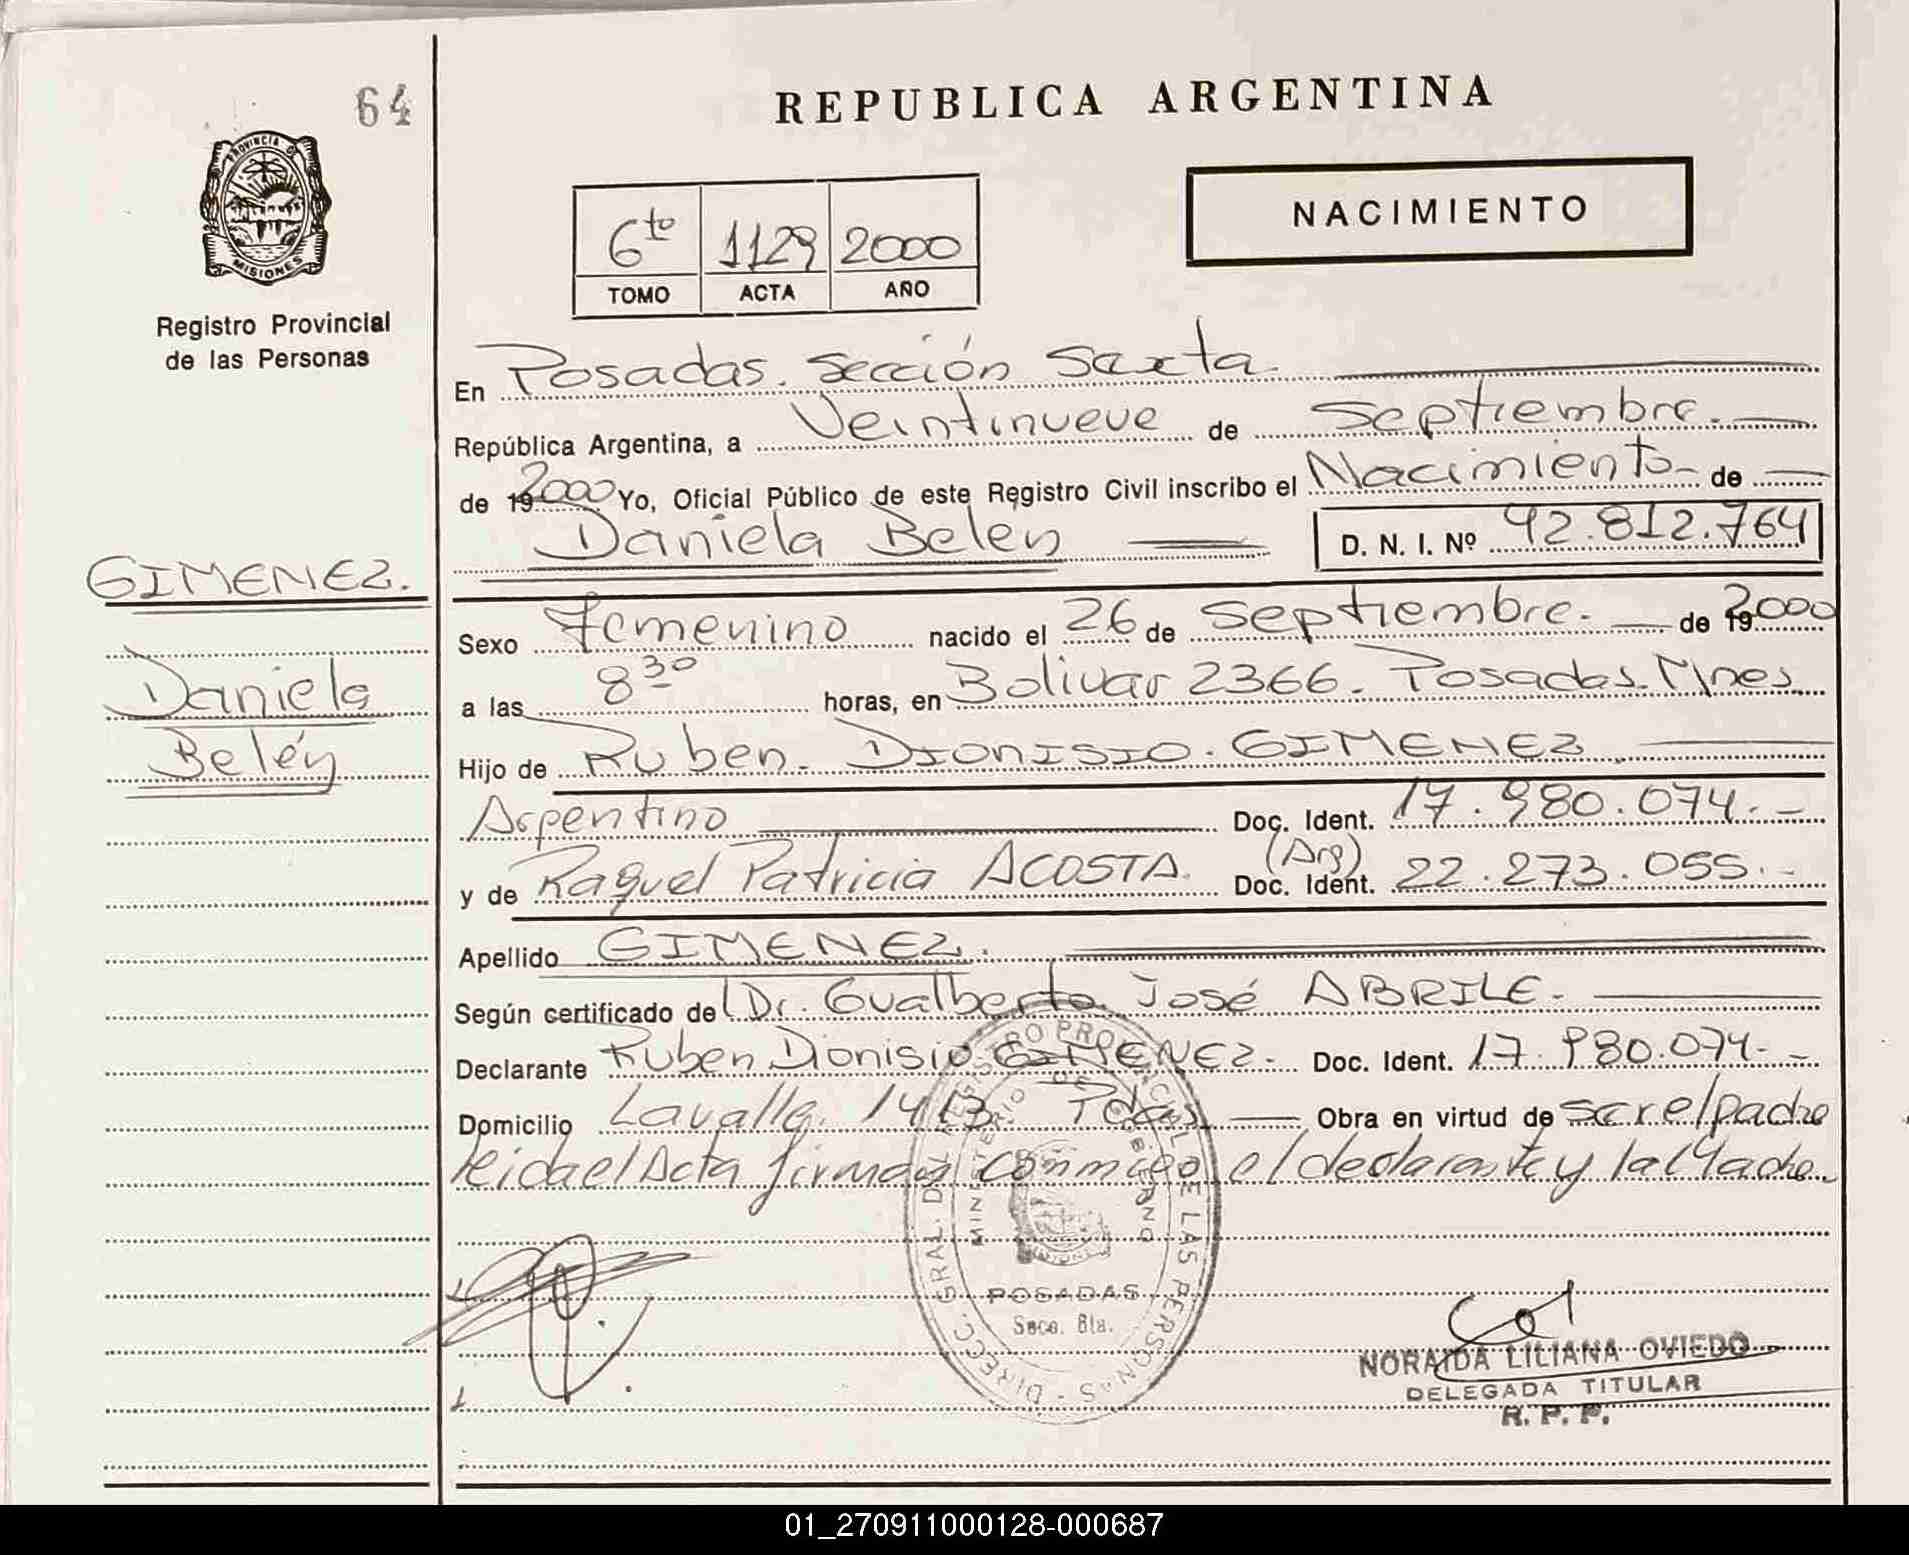 64
REPUBLICA ARGENTINA
PROVINCIA DE
MISIONES
Registro Provincial
de las Personas
NACIMIENTO
6to 1129 2000
TOMO ACTA AÑO
En Posadas. Sección Sexta
República Argentina, a Veintinueve de Septiembre.
de 2000 Yo, Oficial Público de este Registro Civil inscribo el Nacimiento de
Daniela Belén D. N. I. Nº 42.812.764
GIMENEZ.
Daniela
Belén
Sexo Femenino nacido el 26 de Septiembre. de 2000
a las 8 30 horas, en Bolivar 2366. Posadas. Mnes
Hijo de Ruben. Dionisio. GIMENEZ
Argentino Doc. Ident. 17.980.074.-
y de Raquel Patricia ACOSTA. (Arg) Doc. Ident. 22.273.055.-
Apellido GIMENEZ.
Según certificado de Dr. Gualberto José ABRILE.
Declarante Ruben Dionisio GIMENEZ. Doc. Ident. 17.980.074.-
Domicilio Lavalle. 1413 Pdas Obra en virtud de ser el padre
leida el Acta firman conmigo el declarante y la Madre.
DIRECC. GRAL. DEL REGISTRO PROVINCIAL DE LAS PERSONAS
MINISTERIO DE GOBIERNO
MISIONES
POSADAS
Secc. 6ta.
NORAIDA LILIANA OVIEDO
DELEGADA TITULAR
R. P. P.
01_270911000128-000687